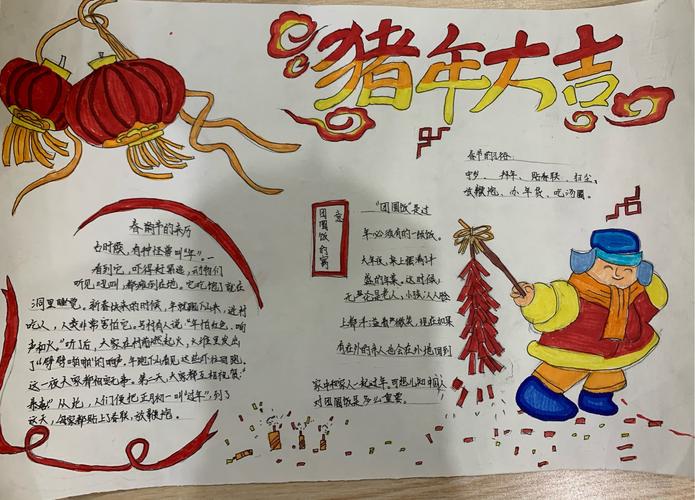 猪年大吉
春节的习俗:
守岁、拜年、贴春联、扫尘、
放鞭炮、办年货、吃汤圆。
春节的来历
古时候,有种怪兽叫"年"。
看到它,吓得
听见吼叫,都瘫倒在地。它吃饱了就在
洞里睡觉。新春快来的时候,年就跑下山来,进村
吃人,人类非常害怕它。有人说"年怕红色、响
声和火"听了后,大家在村前燃起火,
了"劈劈啪啪"的响声。年跑下山看见这些外往回跑。
这一夜大家都相安无事。第二天,大家都互相祝贺:
"恭喜"从此,人们便把正月初一叫"过年",到了
这天,家家都贴上了春联,放鞭炮。
团圆饭的寓意
"团圆饭"是过
年必须有的一顿饭。
大年夜,桌上摆满丰
盛的年菜。这时候,
无论是老人、小孩,人人脸
上都洋溢着严微笑,现在如果
有在外的亲人也会在外地回到
家中和家人一起过年。可想而知中国人
对团圆饭是多么重要。